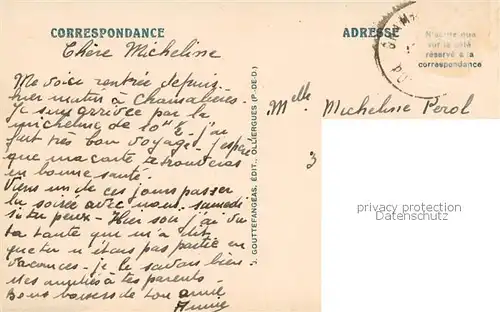 CORRESPONDANCE
ADRESSE
N'écrire que
sur le côté
réservé à la
correspondance
Chère Micheline
Me voici rentrée depuis
hier matin à Chamalières.
Je suis arrivée par la
micheline de 10H J'ai
fait très bon voyage. J'espère
que ma carte te trouveras
en bonne santé.
Viens un de ces jours passer
la soirée avec nous. samedi
si tu peux. Hier soir j'ai vu
ta tante qui m'a dit
que tu n'étais pas partie en
vacances. je le savais bien.
Mes amitiés à tes parents.
Bons baisers de ton amie
Annie
J. GOUTTEFANGEAS, ÉDIT., OLLIERGUES (P.-DE-D.)
Melle Micheline Perol
3
privacy protection
Datenschutz